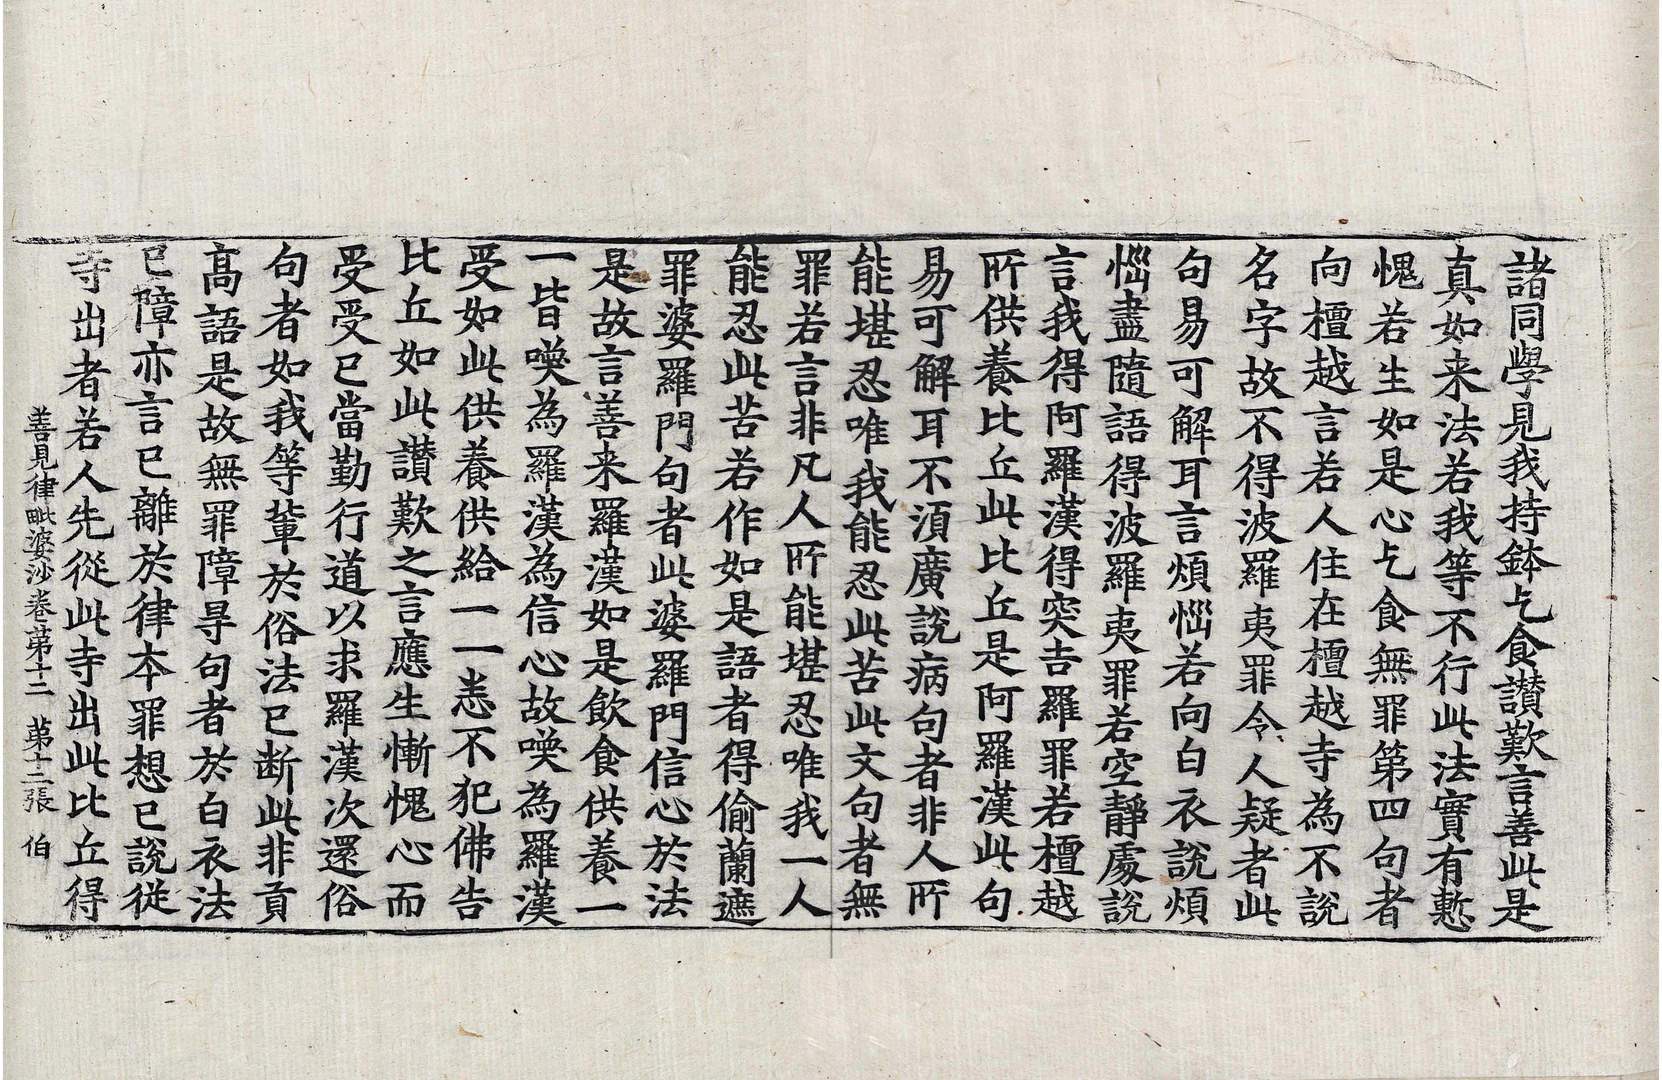 諸同學見我持鉢乞食讃歎言善此是
真如来法若我等不行此法實有慙
愧若生如是心乞食無罪第四句者
向檀越言若人住在檀越寺為不說
名字故不得波羅夷罪令人疑者此
句易可解耳言煩惱若向白衣說煩
惱盡隨語得波羅夷罪若空靜處說
言我得阿羅漢得突吉羅罪若檀越
所供養比丘此比丘是阿羅漢此句
易可解耳不湏廣說病句者非人所
能堪忍唯我能忍此苦此文句者無
罪若言非凡人所能堪忍唯我一人
能忍此苦若作如是語者得偷蘭遮
罪婆羅門句者此婆羅門信心於法
是故言善来羅漢如是飲食供養一
一皆喚為羅漢為信心故喚為羅漢
受如此供養供給一一悉不犯佛告
比丘如此讃歎之言應生慚愧心而
受受已當勤行道以求羅漢次還俗
句者如我等輩於俗法已断此非貢
高語是故無罪障㝵句者於白衣法
已障亦言已離於律本罪想已說従
寺出者若人先從此寺出此比丘得
善見律毗婆沙卷苐十二　苐十二張　伯